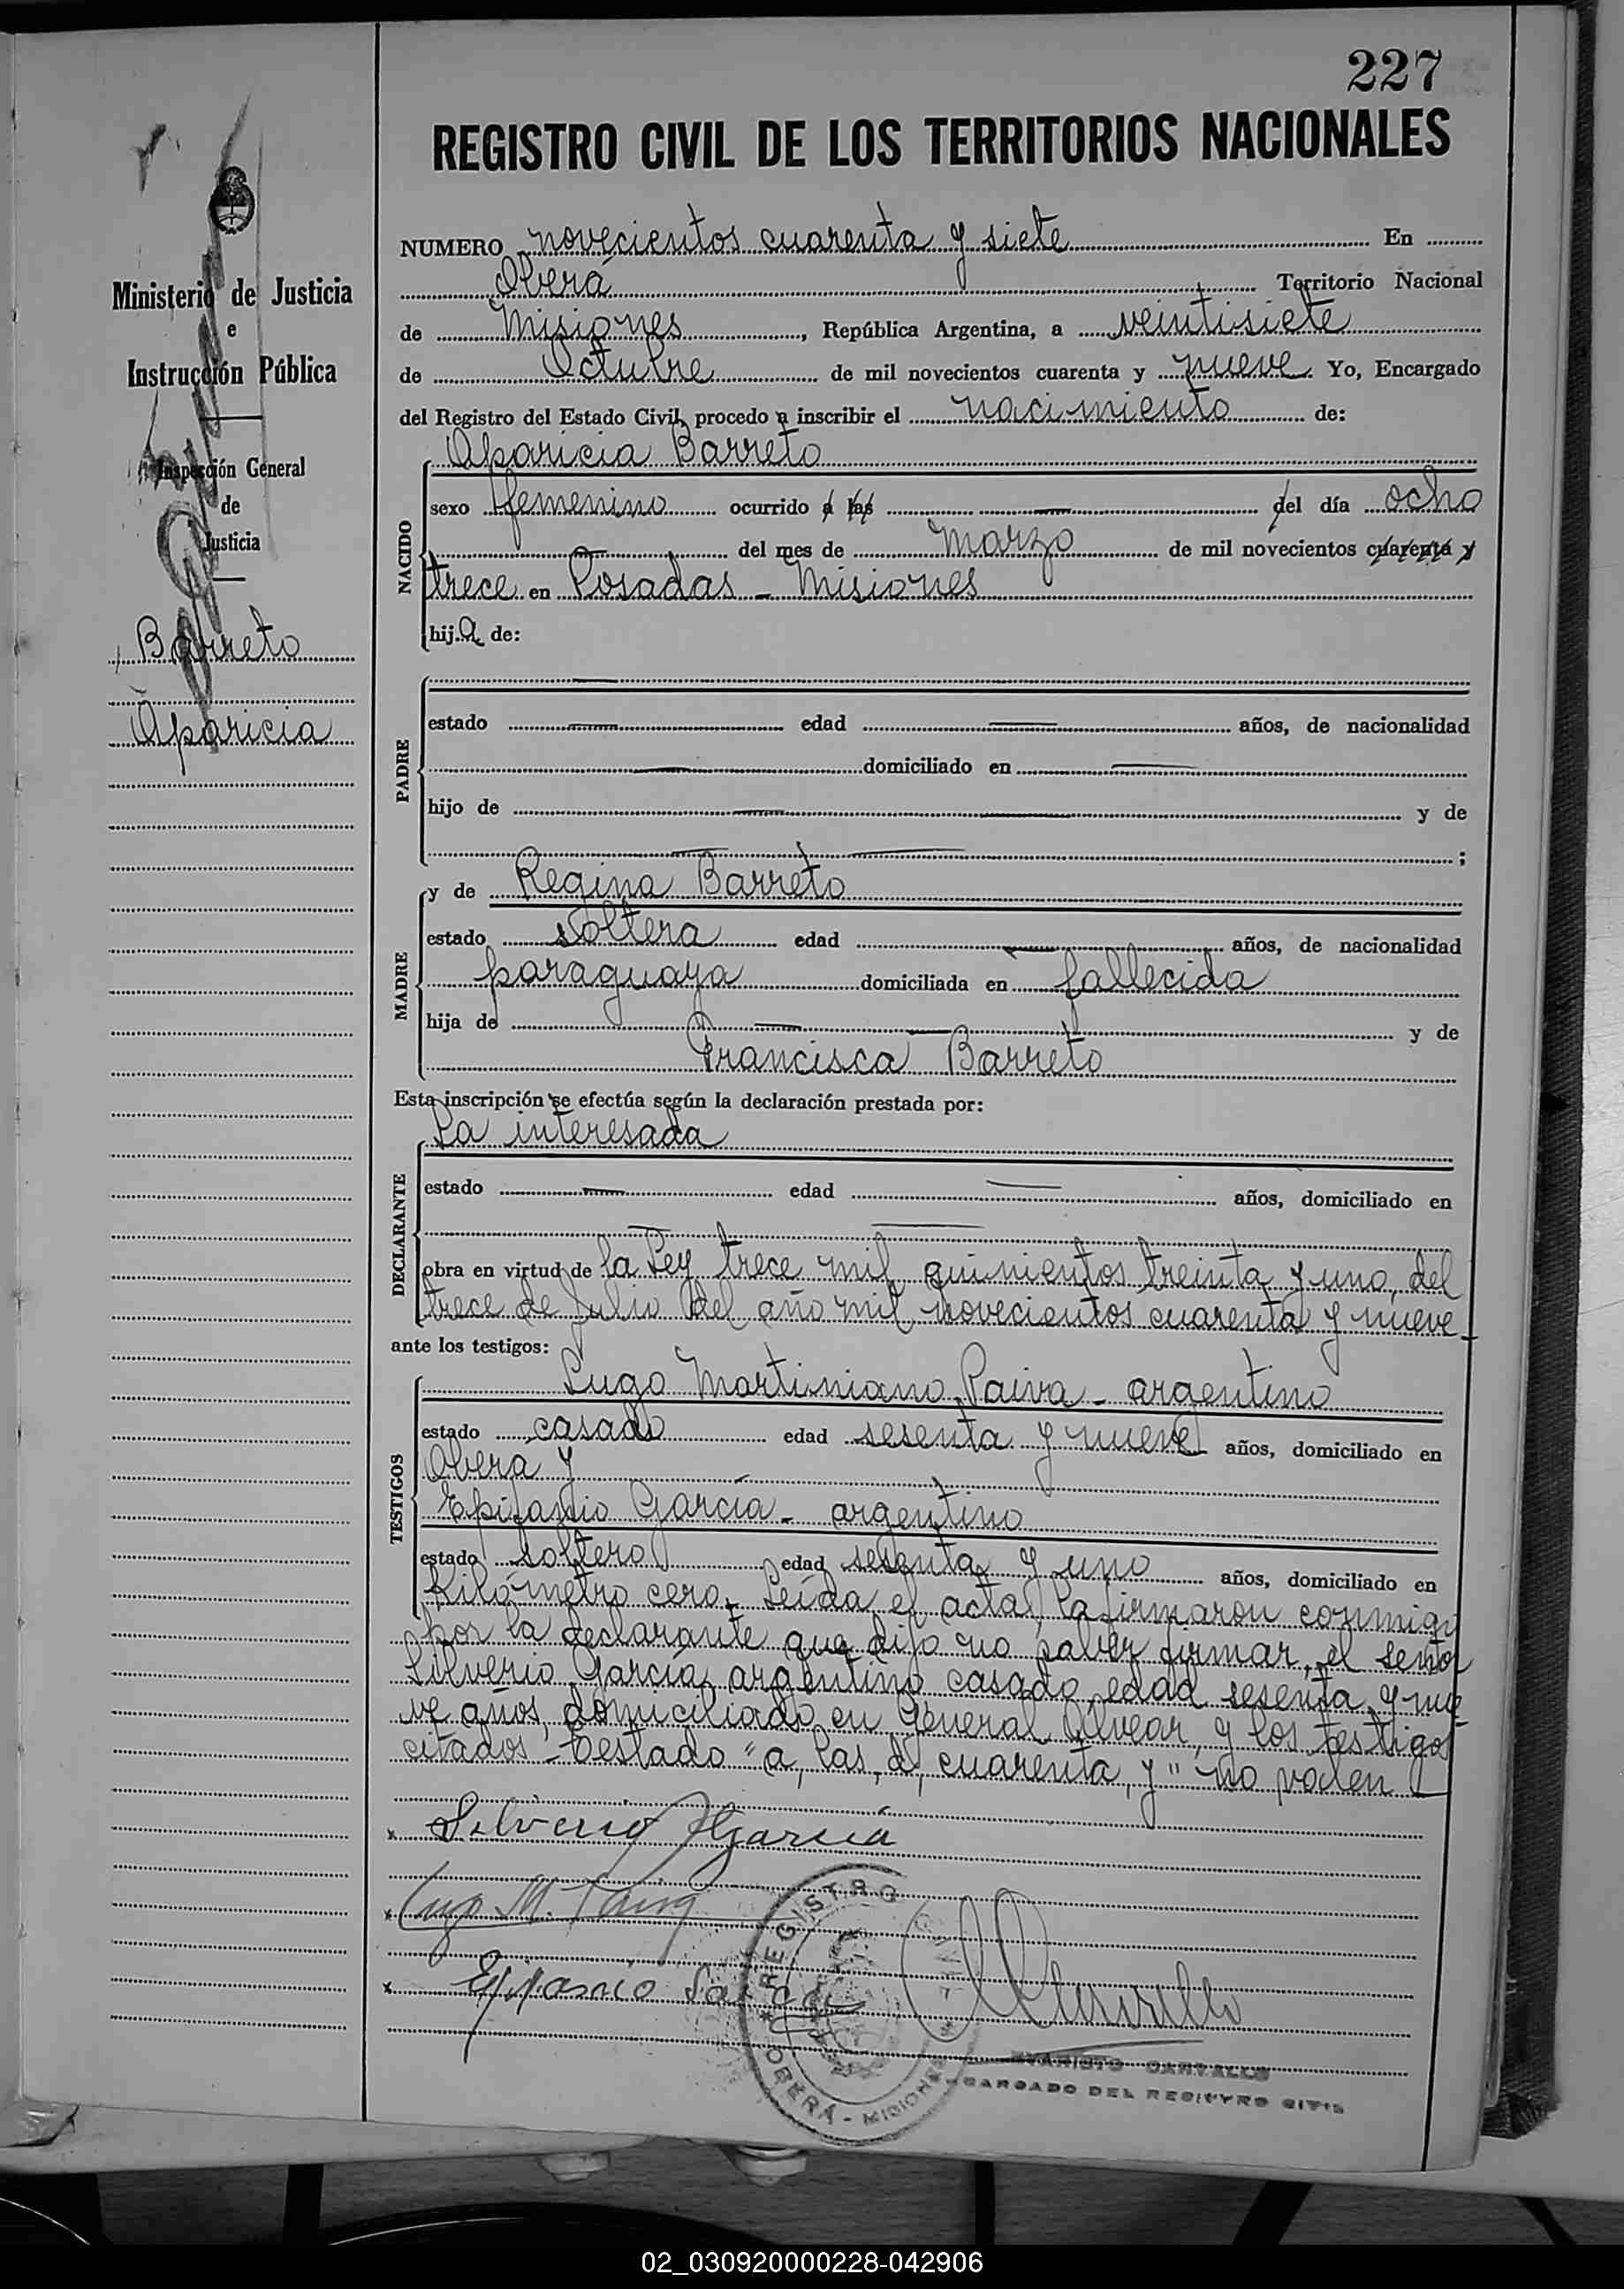 227
REGISTRO CIVIL DE LOS TERRITORIOS NACIONALES
Ministerio de Justicia
e
Instrucción Pública
Inspección General
de
Justicia
Barreto
Aparicia
NUMERO novecientos cuarenta y siete En
Oberá Territorio Nacional
de Misiones, República Argentina, a veintisiete
de Octubre de mil novecientos cuarenta y nueve. Yo, Encargado
del Registro del Estado Civil, procedo a inscribir el nacimiento de:
Aparicia Barreto
NACIDO
sexo femenino ocurrido a las — del día ocho
— del mes de marzo de mil novecientos cuarenta y
trece en Posadas - Misiones
hija de:
PADRE
—
estado — edad — años, de nacionalidad
— domiciliado en —
hijo de — — y de
— — ;
MADRE
y de Regina Barreto
estado soltera edad — años, de nacionalidad
paraguaya domiciliada en fallecida
hija de — — y de
Francisca Barreto
Esta inscripción se efectúa según la declaración prestada por:
DECLARANTE
La interesada
estado — edad — años, domiciliado en
— —
obra en virtud de la Ley trece mil quinientos treinta y uno, del
trece de Julio del año mil novecientos cuarenta y nueve -
ante los testigos:
TESTIGOS
Lugo Martiniano Paiva - argentino
estado casado edad sesenta y nueve años, domiciliado en
Obera y
Epifanio García - argentino
estado soltero edad sesenta y uno años, domiciliado en
Kilómetro cero. Leída el acta, la firmaron conmigo
por la declarante que dijo no saber firmar, el señor
Silverio García, argentino casado, edad sesenta y nue
ve años, domiciliado en General Alvear, y los testigos
citados - Testado "a, las, d, cuarenta, y" no valen
x Silverio García
x Lugo M. Paiva
x Epifanio García
REGISTRO
OBERÁ - MISIONES
EVARISTO CARVALLO
ENCARGADO DEL REGISTRO CIVIL
02_030920000228-042906